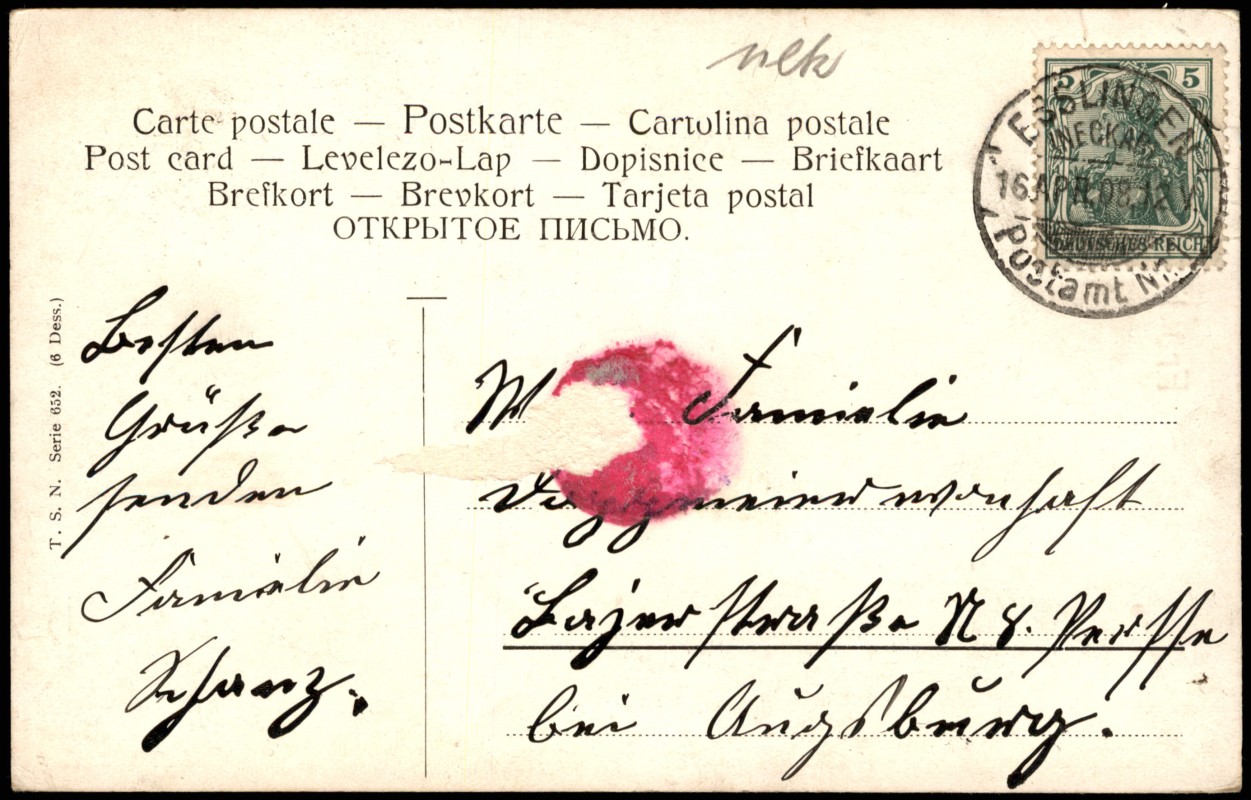 nek
Carte postale — Postkarte — Cartolina postale
Post card — Levelezo-Lap — Dopisnice — Briefkaart
Brefkort — Brevkort — Tarjeta postal
ОТКРЫТОЕ ПИСЬМО.
5 5
DEUTSCHES REICH
ESSLINGEN
(NECKAR)
16 APR. 08. 12
Postamt Nr.
T. S. N. Serie 652. (6 Dess.)
Besten
Grüße
senden
Familie
Schanz.
Familie
Bajer straße N 8. Perssee
bei Augsburg.